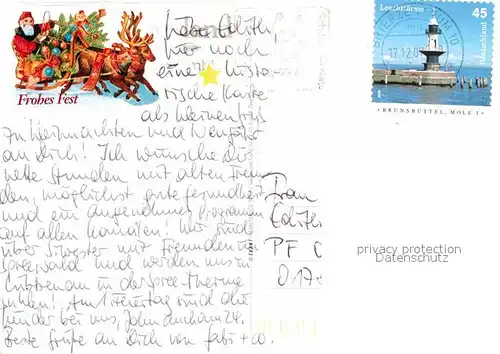 Frohes Fest
liebe Edith,
nur noch
eine histo
rische Karte
als kleinen Gruß
zu Weihnachten und Neujahr
an Dich! Ich wünsche Dir
nette Stunden mit alten Freun
den, möglichst gute Gesundheit
und ein angenehmes Programm
auf allen Kanälen! Wir sind
über Silvester mit Freunden im
Spreewald und werden uns in
Lübbenau in der Spree-Therme
Am Freitag sind die
Kinder bei uns, John
Beste Grüße an Dich von Gabi +
Leuchttürme
45
Deutschland
17.12.0
BRUNSBÜTTEL, MOLE 1
Frau
Edith
PF
017
privacy protection
Datenschutz